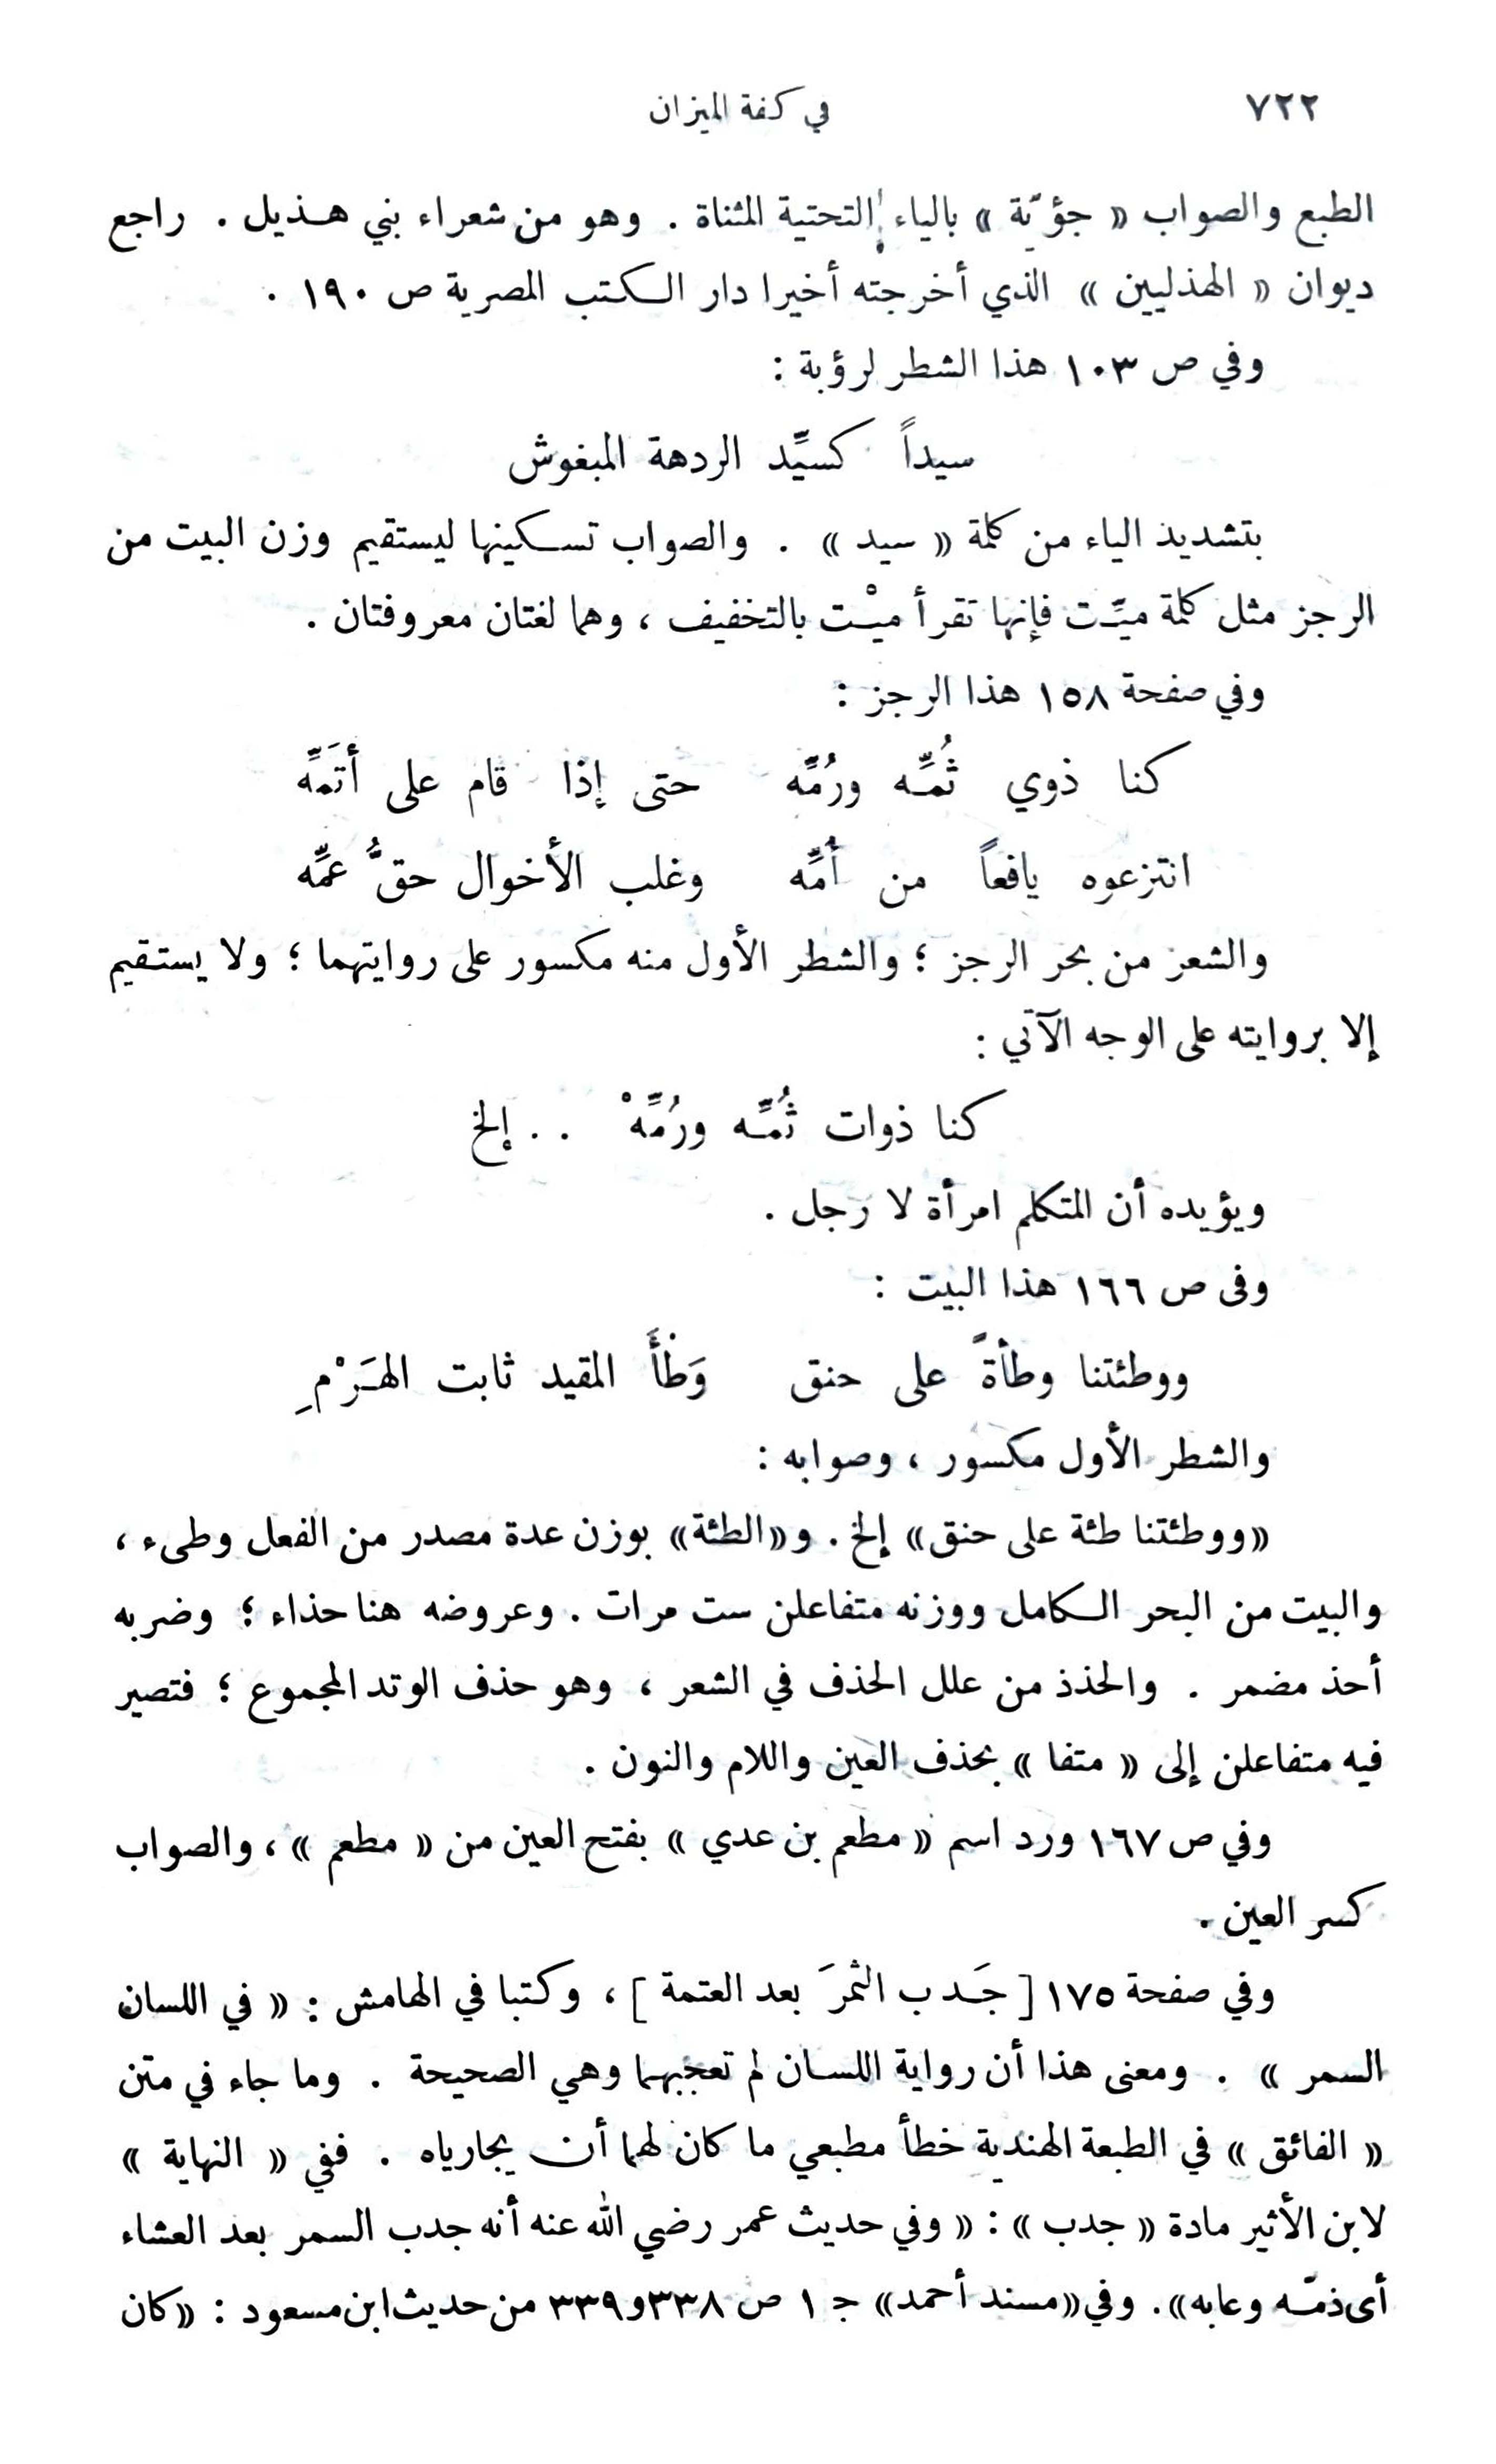 ٧٢٢ في كفة الميزان
الطبع والصواب « جؤيّة » بالياء التحتية المثناة . وهو من شعراء بني هـذيل . راجع
ديوان « الهذليين » الذي أخرجته أخيرا دار الـكتب المصرية ص ١٩٠ .
وفي ص ١٠٣ هذا الشطر لرؤبة :
سيداً كسيِّد الردهة المبغوش
بتشديد الياء من كلمة « سيد » . والصواب تسـكينها ليستقيم وزن البيت من
الرجز مثل كلمة ميِّـت فإنها تقرأ ميْـت بالتخفيف ، وهما لغتان معروفتان .
وفي صفحة ١٥٨ هذا الرجز :
كنا ذوي ثُمِّـه ورُمِّه حتى إذا قام على أتَمِّه
انتزعوه يافعاً من أُمِّه وغلب الأخوال حقُّ عمِّه
والشعر من بحر الرجز ؛ والشطر الأول منه مكسور على روايتهما ؛ ولا يستـقيم
إلا بروايته على الوجه الآتي :
كنا ذوات ثُمِّـه ورُمِّهْ . . إلخ
ويؤيده أن المتكلم امرأة لا رجل .
وفى ص ١٦٦ هذا البيت :
ووطئتنا وطأةً على حنق وَطْأَ المقيد ثابت الهَـرْمِ
والشطر الأول مكسور ، وصوابه :
«ووطئتنا طئة على حنق» إلخ . و«الطئة» بوزن عدة مصدر من الفعل وطىء ،
والبيت من البحر الـكامل ووزنه متفاعلن ست مرات . وعروضه هنا حذاء ؛ وضربه
أحذ مضمر . والحذذ من علل الحذف في الشعر ، وهو حذف الوتد المجموع ؛ فتصير
فيه متفاعلن إلى « متفا » بحذف العين واللام والنون .
وفي ص ١٦٧ ورد اسم « مطعم بن عدي » بفتح العين من « مطعم » ، والصواب
كسر العين .
وفي صفحة ١٧٥ [ جَـدب الثمرَ بعد العتمة ] ، وكتبا في الهامش : « في اللسان
السمر » . ومعنى هذا أن رواية اللسـان لم تعجبهـما وهي الصحيحة . وما جاء في متن
« الفائق » في الطبعة الهندية خطأ مطبعي ما كان لهما أن يجارياه . ففي « النهاية »
لابن الأثير مادة « جدب » : « وفي حديث عمر رضي الله عنه أنه جدب السمر بعد العشاء
أى ذمّـه وعابه» . وفي «مسند أحمد» جـ ١ ص ٣٣٨ و ٣٣٩ من حديث ابن مسعود : «كان